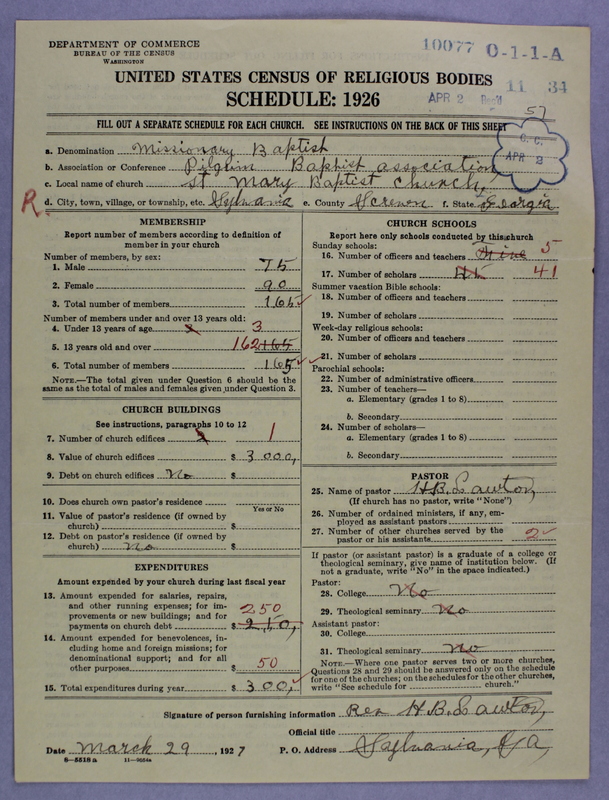 DEPARTMENT OF COMMERCE
BUREAU OF THE CENSUS
WASHINGTON
10077 O-1-1-A
UNITED STATES CENSUS OF RELIGIOUS BODIES
11 34
SCHEDULE: 1926
APR 2 Rec'd
57
FILL OUT A SEPARATE SCHEDULE FOR EACH CHURCH. SEE INSTRUCTIONS ON THE BACK OF THIS SHEET
C. C.
APR 2
a. Denomination Missionary Baptist
b. Association or Conference Pilgrim Baptist association
c. Local name of church St Mary Baptist church,
R d. City, town, village, or township, etc. Sylvania e. County Screven f. State Georgia
MEMBERSHIP
Report number of members according to definition of member in your church
Number of members, by sex:
1. Male 75
2. Female 90
3. Total number of members 165
Number of members under and over 13 years old:
4. Under 13 years of age 3
5. 13 years old and over 162 165
6. Total number of members 165
NOTE.—The total given under Question 6 should be the same as the total of males and females given under Question 3.
CHURCH BUILDINGS
See instructions, paragraphs 10 to 12
7. Number of church edifices 1
8. Value of church edifices $ 3000,
9. Debt on church edifices No $
10. Does church own pastor's residence
Yes or No
11. Value of pastor's residence (if owned by church) $
12. Debt on pastor's residence (if owned by church) No $
EXPENDITURES
Amount expended by your church during last fiscal year
13. Amount expended for salaries, repairs, and other running expenses; for improvements or new buildings; and for payments on church debt 250 $ 250,
14. Amount expended for benevolences, including home and foreign missions; for denominational support; and for all other purposes $ 50
15. Total expenditures during year $ 300,
CHURCH SCHOOLS
Report here only schools conducted by this church
Sunday schools:
16. Number of officers and teachers 5
17. Number of scholars 41
Summer vacation Bible schools:
18. Number of officers and teachers
19. Number of scholars
Week-day religious schools:
20. Number of officers and teachers
21. Number of scholars
Parochial schools:
22. Number of administrative officers
23. Number of teachers—
a. Elementary (grades 1 to 8)
b. Secondary
24. Number of scholars—
a. Elementary (grades 1 to 8)
b. Secondary
PASTOR
25. Name of pastor H.B. Lawton,
(If church has no pastor, write "None")
26. Number of ordained ministers, if any, employed as assistant pastors
27. Number of other churches served by the pastor or his assistants 2
If pastor (or assistant pastor) is a graduate of a college or theological seminary, give name of institution below. (If not a graduate, write "No" in the space indicated.)
Pastor:
28. College No
29. Theological seminary No
Assistant pastor:
30. College
31. Theological seminary No
NOTE.—Where one pastor serves two or more churches, Questions 28 and 29 should be answered only on the schedule for one of the churches; on the schedules for the other churches, write "See schedule for church."
Signature of person furnishing information Rev H.B. Lawton,
Official title
Date March 29, 1927 P. O. Address Sylvania, Ga,
6—5518 a 11—9654a